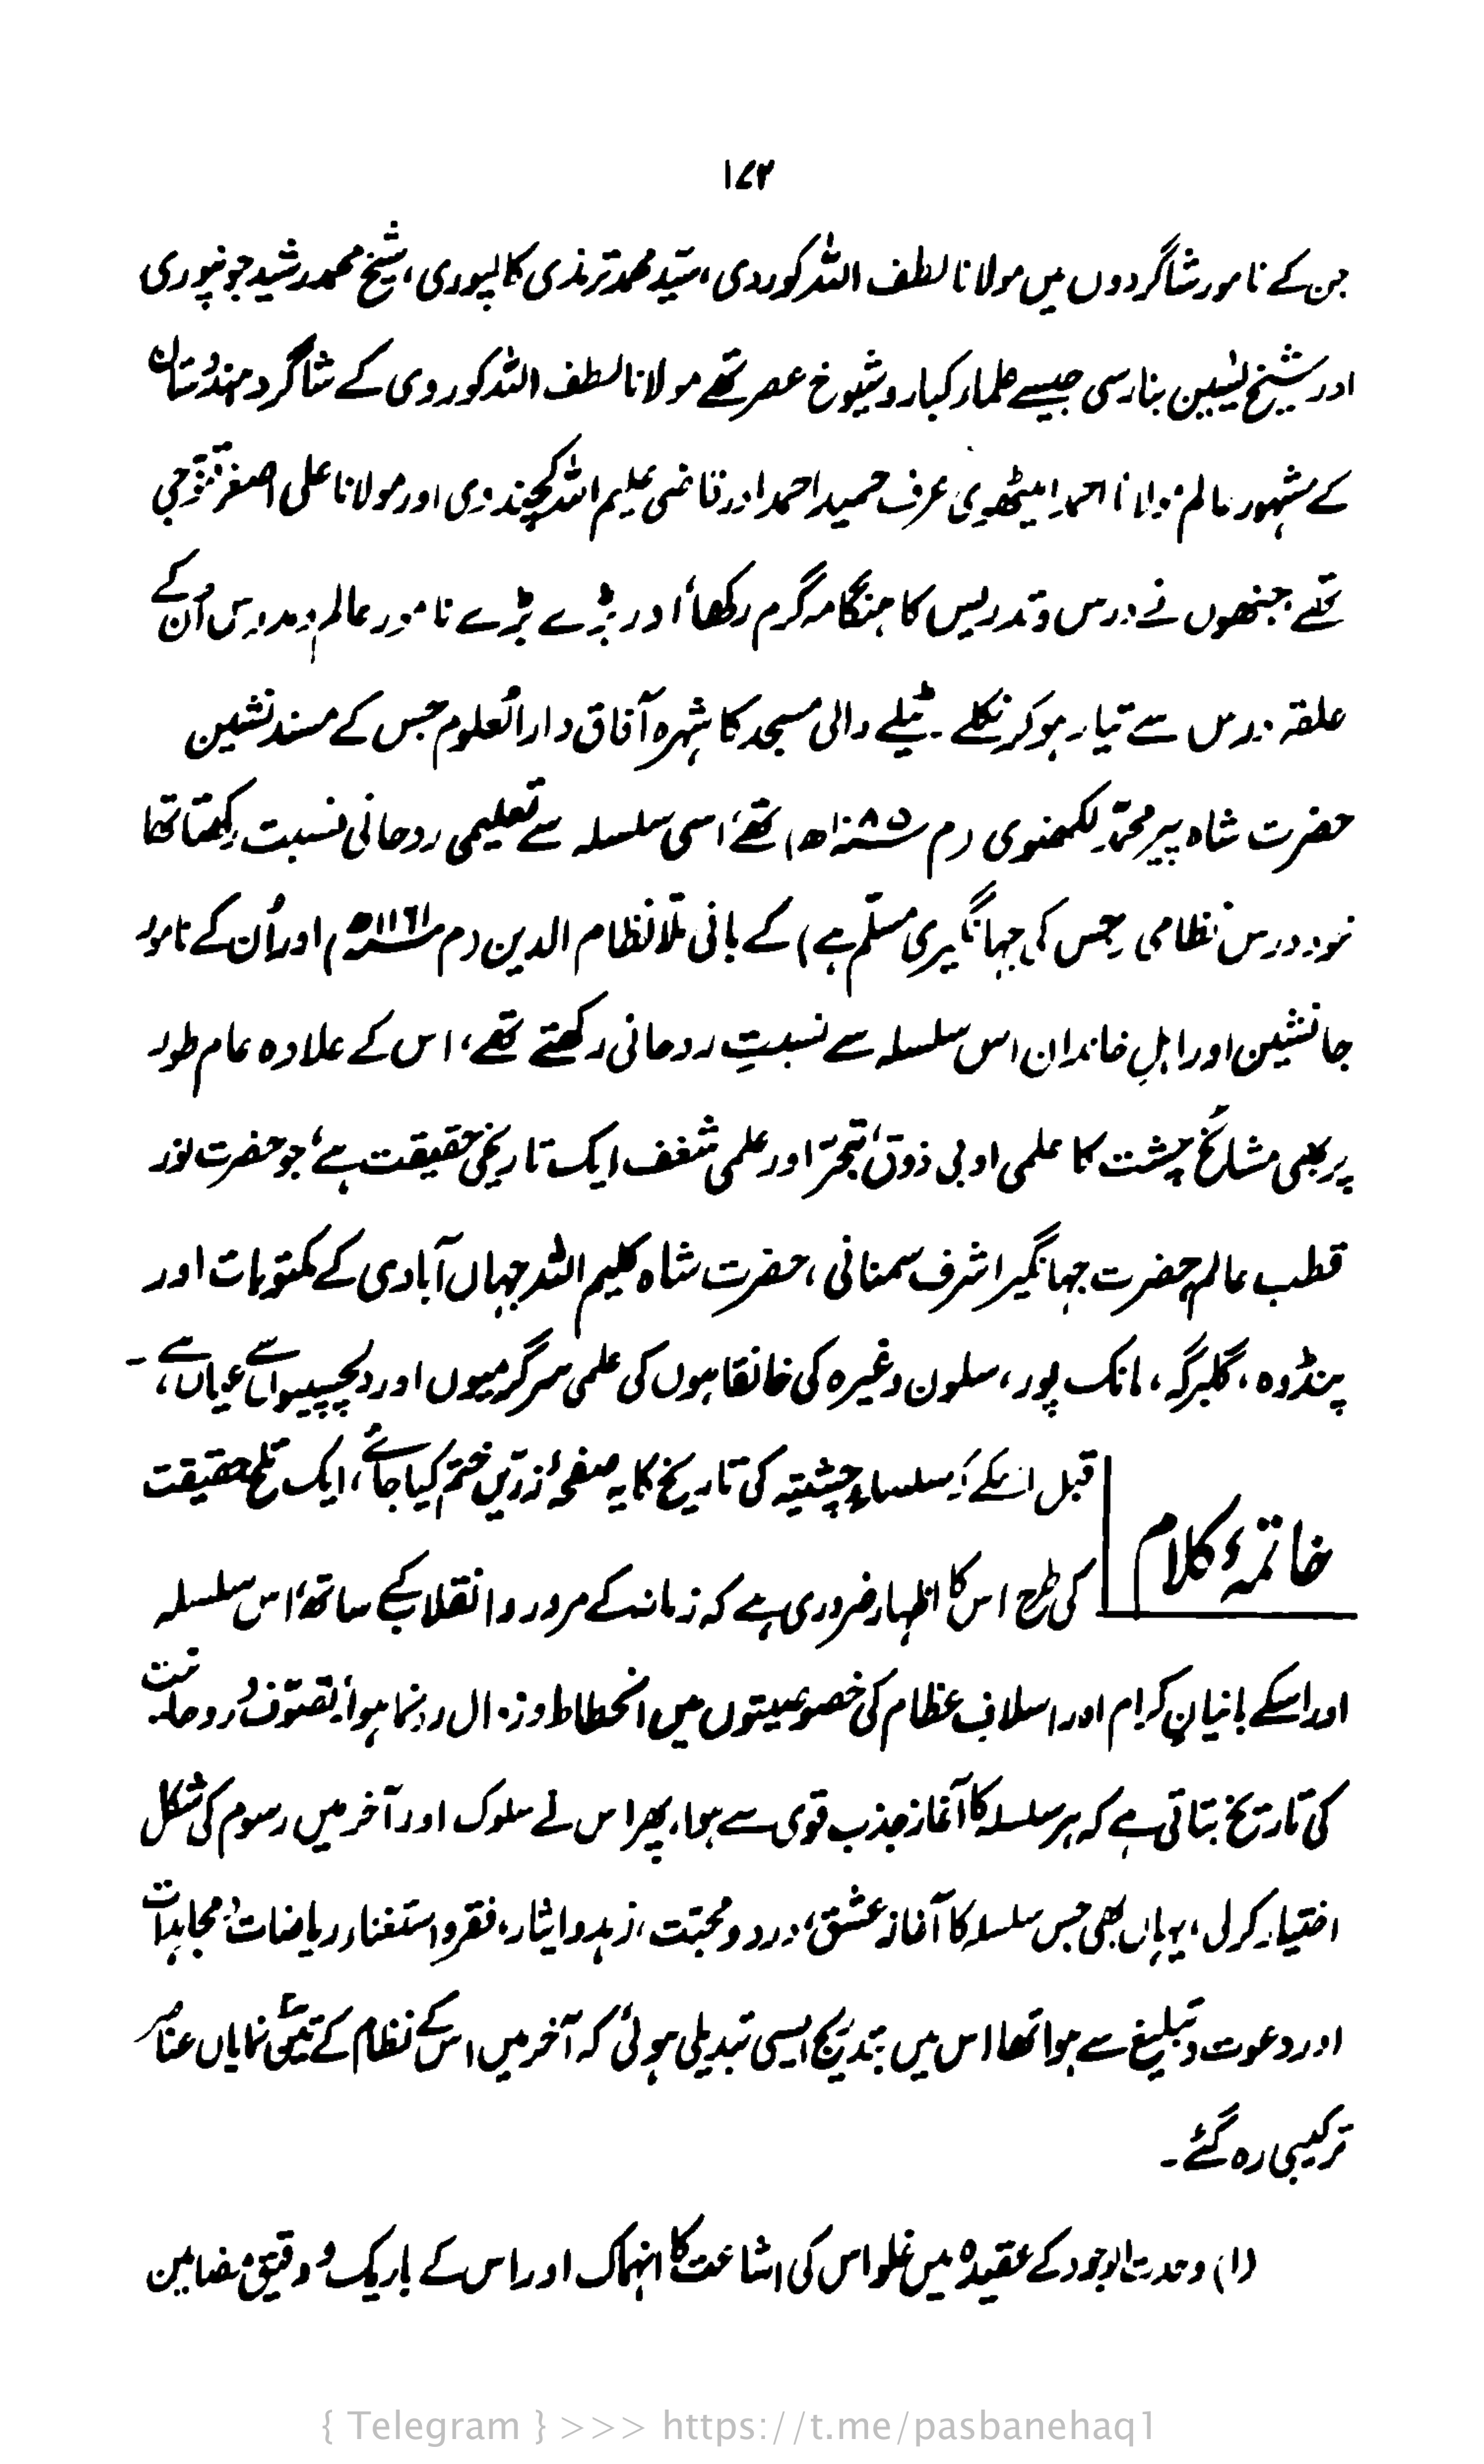 ۱۷۲
جن کے نامور شاگردوں میں مولانا لطف اللہ کوروی، سید محمد ترمذی کالپوری، شیخ محمد رشید جونپوری
اور شیخ یٰسین بنارسی جیسے علماء کبار و شیوخ عصر تھے مولانا لطف اللہ کوروی کے شاگرد ہندوستان
کے مشہور عالم مولانا احمد امیٹھوی عرف حمید احمد اور قاضی علیم اللہ کچندوی اور مولانا علی اصغر قنوجی
تھے جنھوں نے درس و تدریس کا ہنگامہ گرم رکھا، اور بڑے بڑے نامور عالم و مدرس اُن کے
حلقہ درس سے تیار ہو کر نکلے۔ ٹیلے والی مسجد کا شہرہ آفاق دارالعلوم جس کے مسند نشین
حضرت شاہ پیر محمدؒ لکھنوی (م ۱۰۸۵ھ) تھے، اسی سلسلہ سے تعلیمی روحانی نسبت رکھتا تھا
خود درس نظامی (جس کی جہانگیری مسلّم ہے) کے بانی ملّا نظام الدین (م ۱۱۶۱ھ) اور اُن کے نامور
جانشین اور اہلِ خاندان اس سلسلہ سے نسبتِ روحانی رکھتے تھے، اس کے علاوہ عام طور
پر بھی مشائخ چشت کا علمی ادبی ذوق، تبحّر اور علمی شغف ایک تاریخی حقیقت ہے، جو حضرت نور
قطب عالم، حضرت جہانگیر اشرف سمنانی، حضرت شاہ کلیم اللہ جہاں آبادی کے مکتوبات اور
پنڈوہ، گلبرگہ، مانک پور، سلون وغیرہ کی خانقاہوں کی علمی سرگرمیوں اور دلچسپیوں سے عیاں ہے۔
خاتمۂ کلام
قبل اسکے کہ سلسلہ چشتیہ کی تاریخ کا یہ صفحۂ زرّیں ختم کیا جائے، ایک تلخ حقیقت
کی طرح اس کا اظہار ضروری ہے کہ زمانہ کے مرور و انقلاب کے ساتھ، اس سلسلہ
اور اسکے بانیانِ کرام اور اسلافِ عظام کی خصوصیتوں میں انحطاط و زوال رونما ہوا، تصوّف و روحانیت
کی تاریخ بتاتی ہے کہ ہر سلسلہ کا آغاز جذب قوی سے ہوا، پھر اس نے سلوک اور آخر میں رسوم کی شکل
اختیار کر لی، یہاں بھی جس سلسلہ کا آغاز عشق، درد و محبّت، زہد و ایثار، فقر و استغناء، ریاضات و مجاہدات
اور دعوت و تبلیغ سے ہوا تھا اس میں بتدریج ایسی تبدیلی ہوئی کہ آخر میں اس کے نظام کے تین نمایاں عناصر
ترکیبی رہ گئے۔
(۱) وحدت الوجود کے عقیدہ میں غلو اس کی اشاعت کا انہماک اور اس کے باریک و دقیق مضامین
{ Telegram } >>> https://t.me/pasbanehaq1